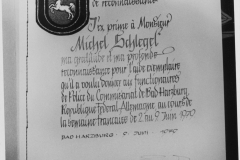 de reconnaissance
J'exprime à Monsieur
Michel Schlegel
ma gratitude et ma profonde
reconnaissance pour l'aide exemplaire
qu'il a voulu donner aux fonctionnaires
de Police du Commissariat de Bad Harzburg
République fédérale Allemagne au cours de
la semaine francaise de 2 au 9 Juin
BAD HARZBURG - 9. JUIN